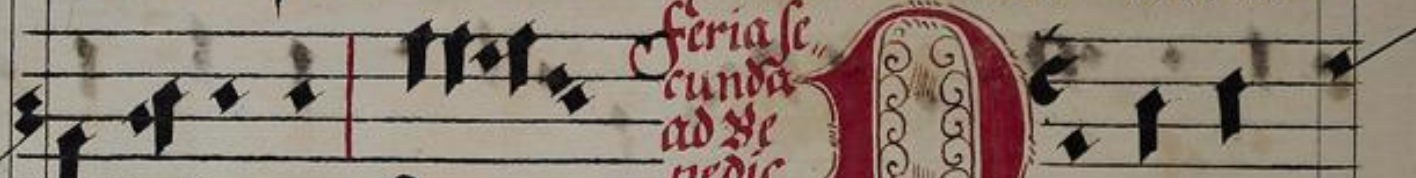 Feria se,,
cunda
ad Be
nedic